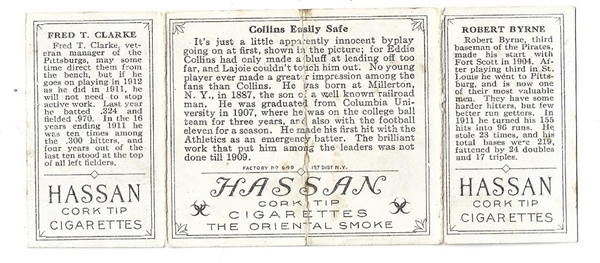 FRED T. CLARKE
Fred T. Clarke, vet-
eran manager of the
Pittsburgs, may some
time direct them from
the bench, but if he
goes on playing in 1912
as he did in 1911, he
will not need to stop
active work. Last year
he batted .324 and
fielded .970. In the 16
years ending 1911 he
was ten times among
the .300 hitters, and
four years out of the
last ten stood at the top
of all left fielders.
HASSAN
CORK TIP
CIGARETTES
Collins Easily Safe
It's just a little apparently innocent byplay
going on at first, shown in the picture; for Eddie
Collins had only made a bluff at leading off too
far, and Lajoie couldn't touch him out. No young
player ever made a greater impression among the
fans than Collins. He was born at Millerton,
N. Y., in 1887, the son of a well known railroad
man. He was graduated from Columbia Uni-
versity in 1907, where he was on the college ball
team for three years, and also with the football
eleven for a season. He made his first hit with the
Athletics as an emergency batter. The brilliant
work that put him among the leaders was not
done till 1909.
FACTORY No 649 1st DIST N.Y.
HASSAN
CORK TIP
CIGARETTES
THE ORIENTAL SMOKE
ROBERT BYRNE
Robert Byrne, third
baseman of the Pirates,
made his start with
Fort Scott in 1904. Af-
ter playing third in St.
Louis he went to Pitts-
burg, and is now one
of their most valuable
men. They have some
harder hitters, but few
better run getters. In
1911 he turned his 155
hits into 96 runs. He
stole 23 times, and his
total bases were 219,
fattened by 24 doubles
and 17 triples.
HASSAN
CORK TIP
CIGARETTES